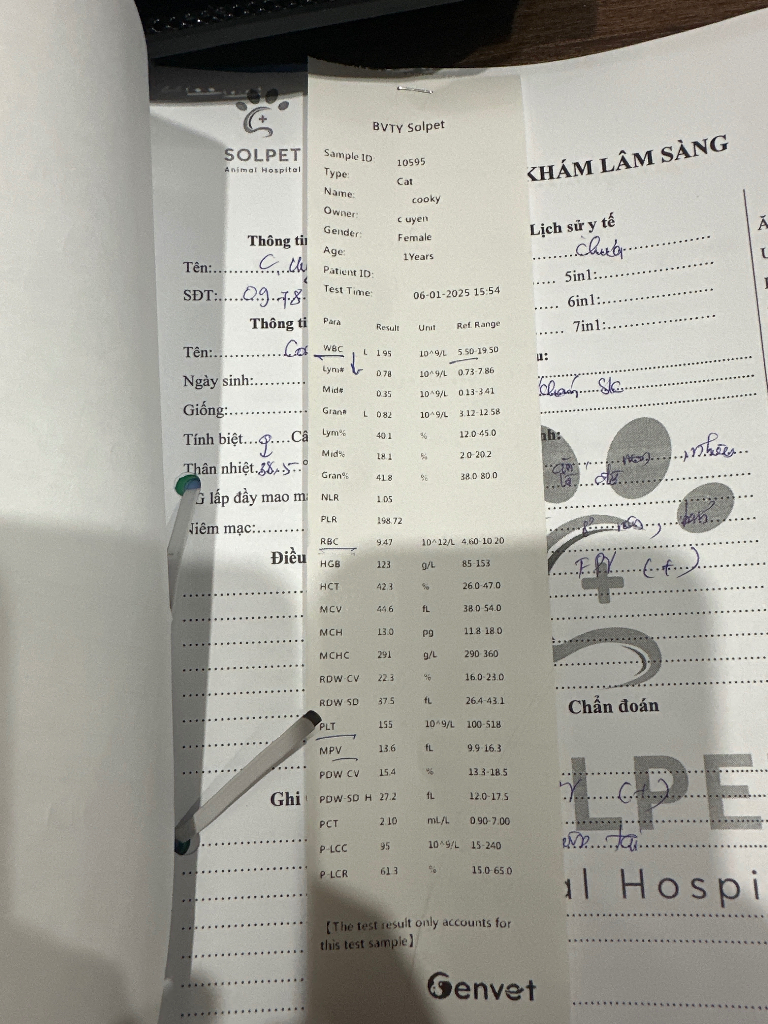 SOLPET
Animal Hospital
KHÁM LÂM SÀNG
Thông ti
Tên:
SĐT: 09.78
Thông ti
Tên: Co
Ngày sinh:
Giống:
Tính biệt ♀ Câ
Thân nhiệt 38.5 °
G lấp đầy mao m
Niêm mạc:
Điều
Ghi
BVTY Solpet
Sample ID: 10595
Type: Cat
Name: cooky
Owner: c uyen
Gender: Female
Age: 1Years
Patient ID:
Test Time: 06-01-2025 15:54
Para Result Unit Ref. Range
WBC L 1.95 10^9/L 5.50-19.50
Lym# 0.78 10^9/L 0.73-7.86
Mid# 0.35 10^9/L 0.13-3.41
Gran# L 0.82 10^9/L 3.12-12.58
Lym% 40.1 % 12.0-45.0
Mid% 18.1 % 2.0-20.2
Gran% 41.8 % 38.0-80.0
NLR 1.05
PLR 198.72
RBC 9.47 10^12/L 4.60-10.20
HGB 123 g/L 85-153
HCT 42.3 % 26.0-47.0
MCV 44.6 fL 38.0-54.0
MCH 13.0 pg 11.8-18.0
MCHC 291 g/L 290-360
RDW-CV 22.3 % 16.0-23.0
RDW-SD 37.5 fL 26.4-43.1
PLT 155 10^9/L 100-518
MPV 13.6 fL 9.9-16.3
PDW-CV 15.4 % 13.3-18.5
PDW-SD H 27.2 fL 12.0-17.5
PCT 2.10 mL/L 0.90-7.00
P-LCC 95 10^9/L 15-240
P-LCR 61.3 % 15.0-65.0
【The test result only accounts for
this test sample】
Genvet
Lịch sử y tế
5in1:
6in1:
7in1:
u:
nh:
FPV (+)
Chẩn đoán
(+)
LPE
al Hospi